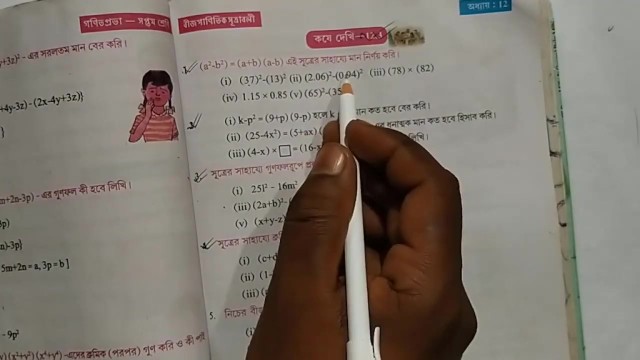 গণিতপ্রভা — সপ্তম শ্রেণি
বীজগাণিতিক সূত্রাবলী
অধ্যায় : 12
+3z)² - এর সরলতম মান বের করি।
+4y-3z) - (2x-4y+3z)}
m+2n-3p) - এর গুণফল কী হবে লিখি।
3p)
n)-3p}
5m+2n = a, 3p = b]
- 9p²
(x²+y²) (x⁴+y⁴) -এদের ক্রমিক (পরপর) গুণ করি ও কী পাই
কষে দেখি
1. (a²-b²) = (a+b) (a-b) এই সূত্রের সাহায্যে মান নির্ণয় করি।
(i) (37)²-(13)² (ii) (2.06)²-(0.94)² (iii) (78) × (82)
(iv) 1.15 × 0.85 (v) (65)²-(35
2. (i) k-p² = (9+p) (9-p) হলে k মান কত হবে বের করি।
(ii) (25-4x²) = (5+ax) ধনাত্মক মান কত হবে হিসাব করি।
(iii) (4-x) × □ = (16-x লিখি।
3. সূত্রের সাহায্যে গুণফলরূপে
(i) 25l² - 16m²
(iii) (2a+b)²-
(v) (x+y-z)
4. সূত্রের সাহায্যে
(i) (c+d
(ii) (1-
(iii) (
5. নিচের
(i)